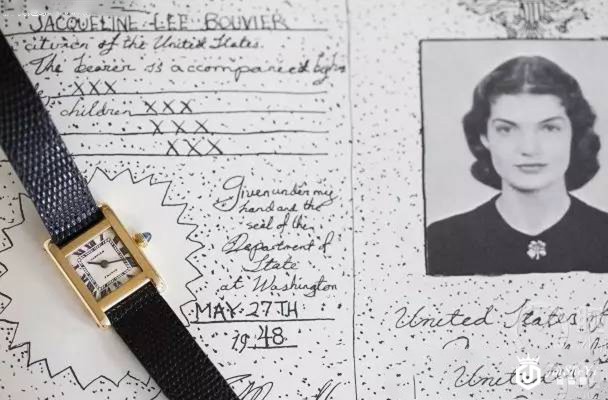 JACQUELINE LEE BOUVIER
citizen of the United States.
The bearer is accompanied by
XXX
children XXX
XXX
XXX
Given under my
hand and the
seal of the
Department of
State
at Washington
MAY 27TH
1948
United States
Unit